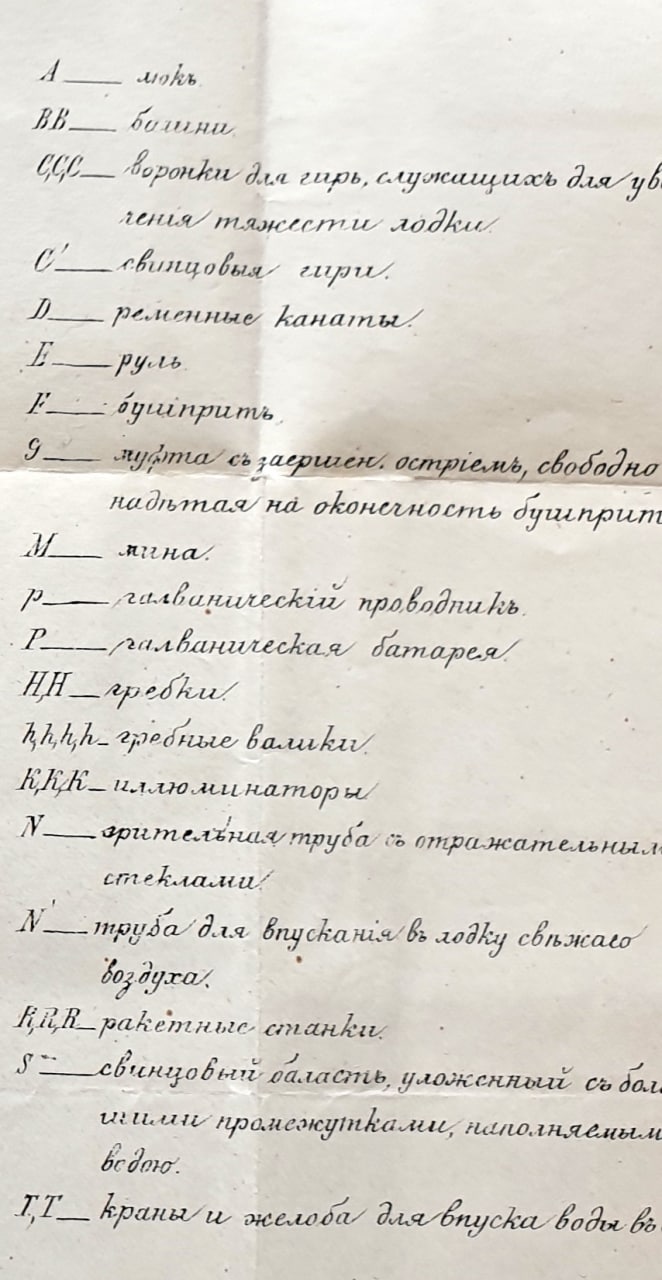 A — люкъ
BB — башни.
C,C,C — воронки для гирь, служащихъ для ув
ченія тяжести лодки.
C' — свинцовыя гири.
D — ременные канаты.
E — руль
F — бушпритъ
g — муфта съ заершен. остріемъ, свободно
надѣтая на оконечность бушприт
M — мина.
p — галваническій проводникъ.
P — галваническая батарея.
H,H — гребки.
h,h,h,h — гребные валики.
K,K,K — иллюминаторы
N — зрительная труба съ отражательным
стеклами.
N' — труба для впусканія въ лодку свѣжаго
воздуха.
R,R,R — ракетные станки.
S — свинцовый баластъ, уложенный съ бол
шими промежутками, наполняемым
водою.
T,T — краны и желоба для впуска воды въ